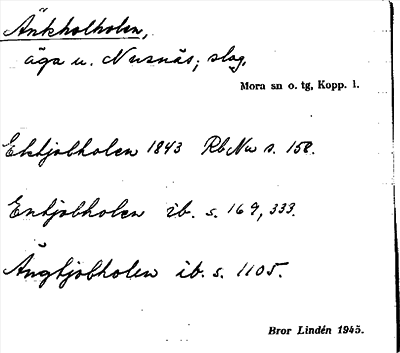 Änkholholen,
äga u. Nusnäs; slog.
Mora sn o. tg, Kopp. l.
Ektjolholen 1843 RbNu s. 158.
Enkjobholen ib. s. 169, 333.
Ängkjobholen ib. s. 1105.
Bror Lindén 1945.